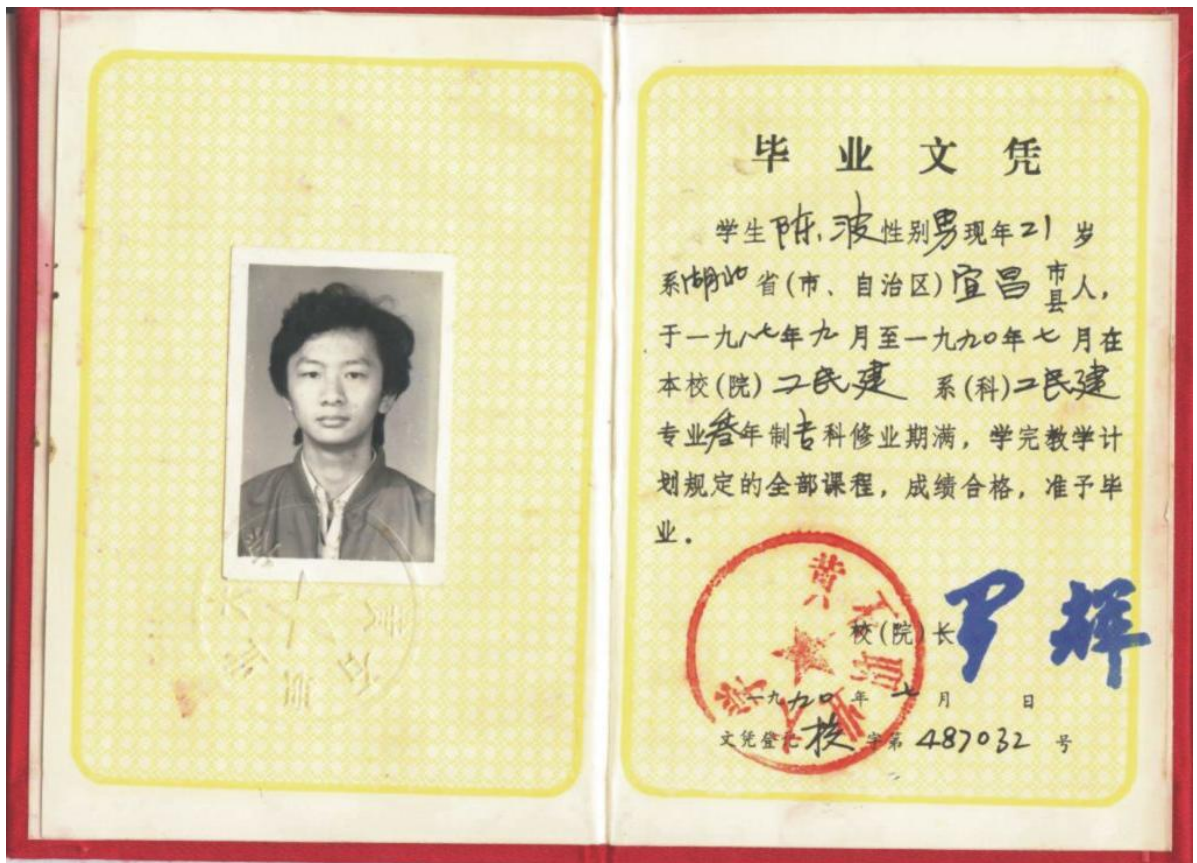 毕业文凭
学生陈波性别男现年21岁
系湖北省(市、自治区)宜昌市县人，
于一九八七年九月至一九九〇年七月在
本校(院)工民建 系(科)工民建
专业叁年制专科修业期满，学完教学计
划规定的全部课程，成绩合格，准予毕
业。
校(院)长 罗辉
一九九〇年七月 日
文凭登记校字第487032号
黄石职业大学